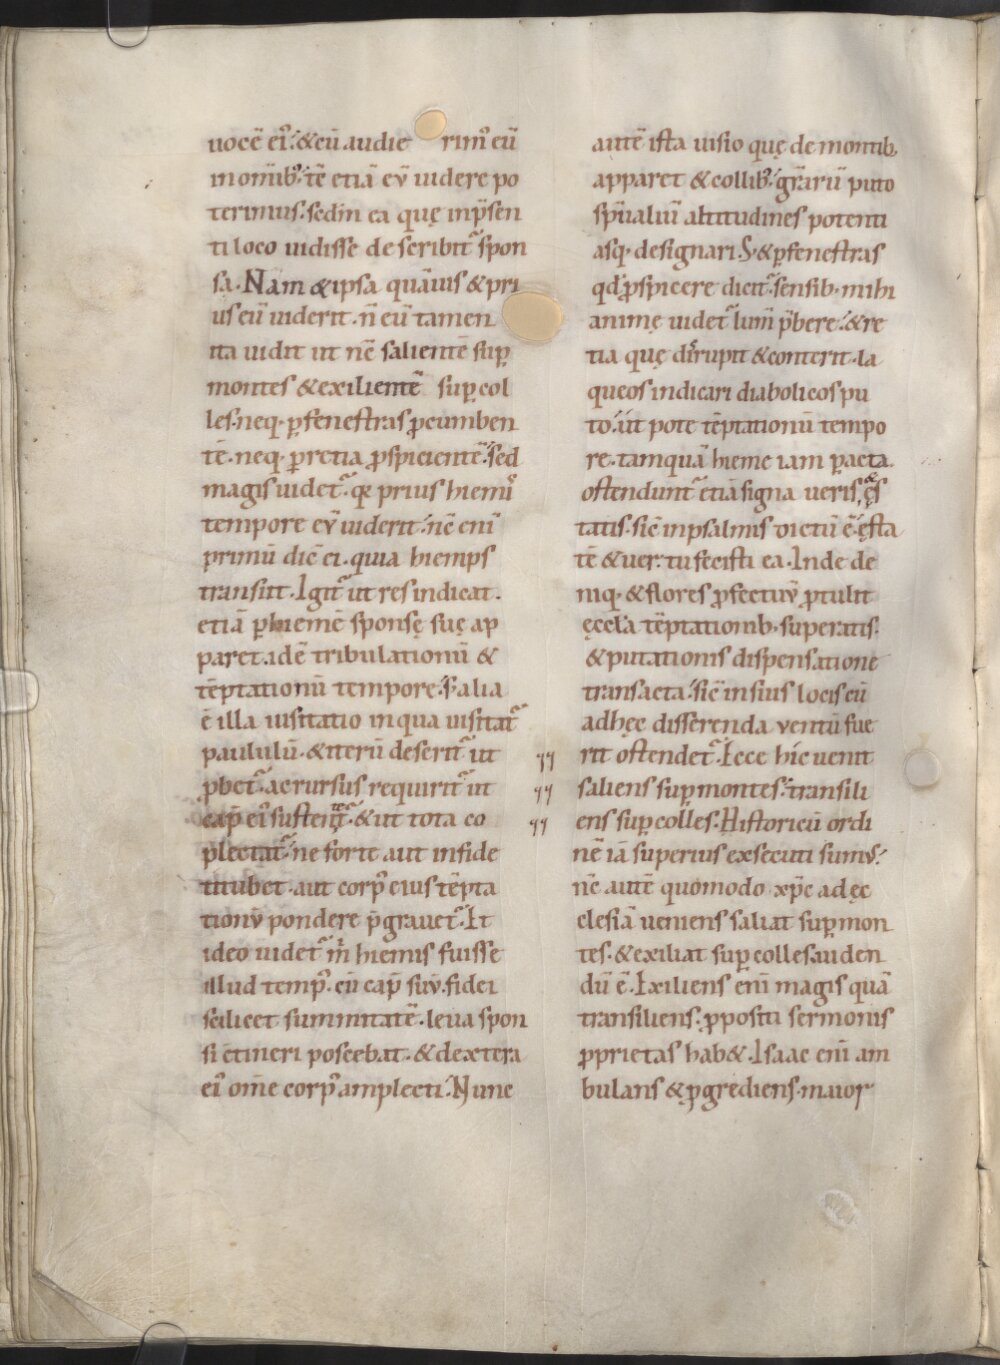 uocē ei᾽ : & cū audie rim᾽ eū
in om̄ib᾽ : tē etiā eū uidere po
terimus : sed in ea quę inp̄sen
ti loco uidisse describit᷑ spon
sa . Nam & ipsa quāuis & pri
us eū uiderit . n̄ eū tamen
ita uidit ut nc̄ salientē sup̱
montes & exilientē sup̱ col
les . neq; p̱ fenestras p̱cumben
tē . neq; p̱ retia p̱spicientē : sed
magis uidet᷑ . qđ prius hiemis
tempore eū uiderit : nc̄ eni
primū dic̄ ei . quia hiemps
transiit . Igit᷑ ut res indicat .
etiā p̱ hiemē sponsę suę ap
paret . idē tribulationū &
tēptationū tempore . S; alia
ē illa uisitatio in qua uisitat᷑
paululū . & iterū deserit᷑ ut
p̱bet᷑ . ac rursus requirit᷑ ut
cap̄ ei᾽ sustenᵗᵉt᷑ . & ut tota co
plectat᷑ : ne forte aut in fide
titubet . aut corp᾽e eius tēpta
tionū pondere p̄grauet᷑ . Et
ideo uidet᷑ m̄ hiemis fuisse
illud temp᾽ . cū cap̄ suū . fidei
scilicet summitatē . leua spon
si c̄tineri poscebat . & dextera
ei᾽ om̄e corp᾽ amplecti . Nunc
autē ista uisio quę de montib;
apparet & collib᾽ : gr̄arū puto
sp̄ualiū altitudines potenti
asq; designari . S; & p̱ fenestras
qđ p̱spicere dicit᷑ : sensib; mihi
animę uidet᷑ lum̄ p̄bere : & re
tia quę dirupit & conterit . la
queos indicari diabolicos pu
to : ut pote tēptationū tempo
re . tamquā hieme iam p̱acta .
ostendunt᷑ etiā signa ueris, & ęs
tatis . sic̄ in psalmis dictū ē : ęsta
tē & uer . tu fecisti ea . Inde de
niq; & flores p̱fectuū p̱tulit
ęccl̄a tēptationib; superatis .
& putationis dispensatione
transacta : sic̄ in suis locis cū
ad hęc disserenda ventū fue
rit ostendet᷑ . Ecce hic uenit
saliens sup̱ montes : transili
ens sup̱ colles . Historicū ordi
nē iā superius exsecuti sumus :
nc̄ autē quomodo xp̄c ad ęc
clesiā ueniens saliat sup̱ mon
tes . & exiliat sup̱ colles . uiden
dū ē . Exiliens eni magis quā
transiliens : p̱positi sermonis
p̱prietas hab& . Isaac eni am
bulans & p̱grediens . maior